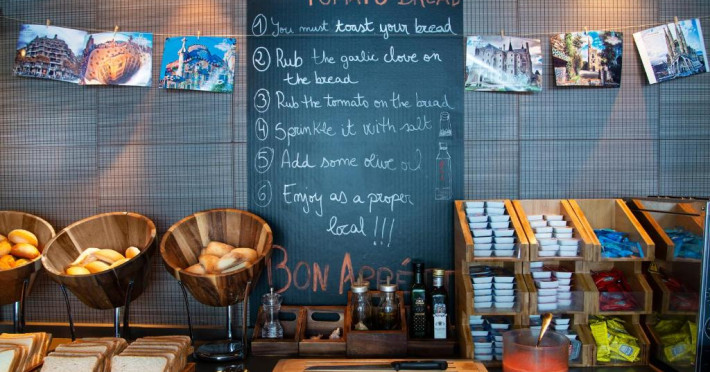 TOMATO BREAD
1 You must toast your bread
2 Rub the garlic clove on
the bread
3 Rub the tomato on the bread
4 Sprinkle it with salt
5 Add some olive oil
6 Enjoy as a proper
local!!!
BON APPÉ